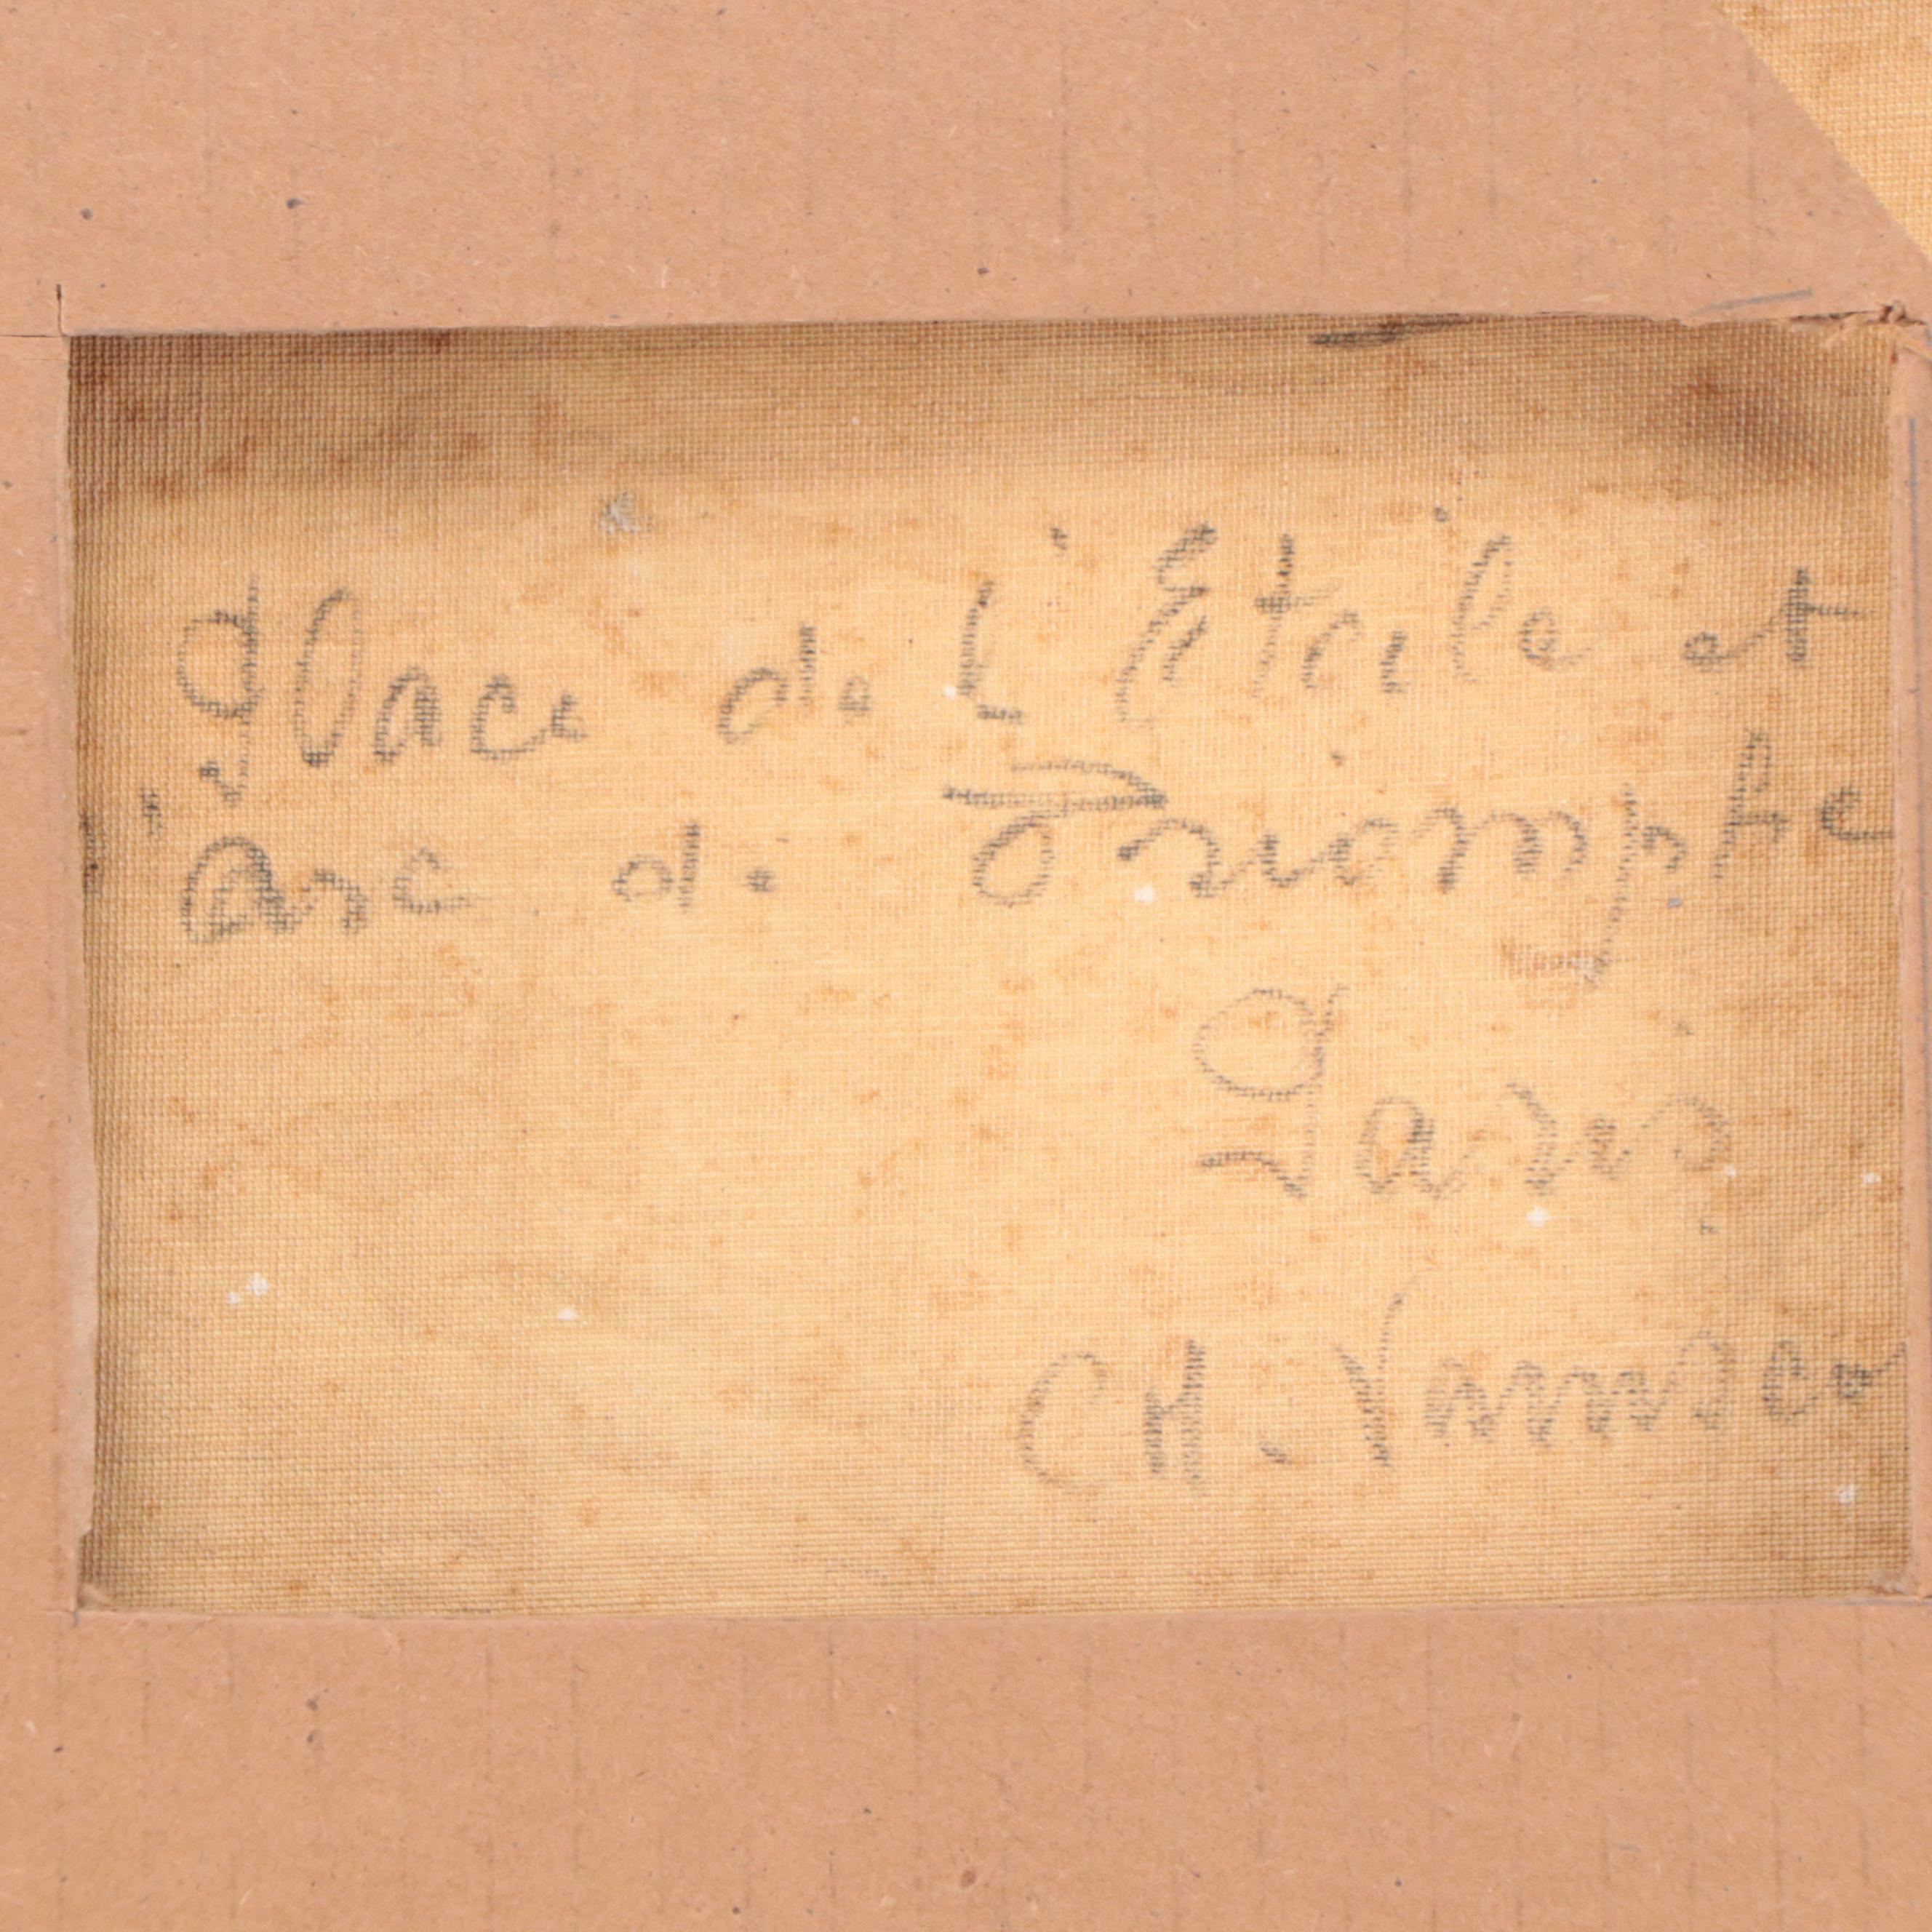 Place de l'Etoile et
Arc de Triomphe
Paris
CH.